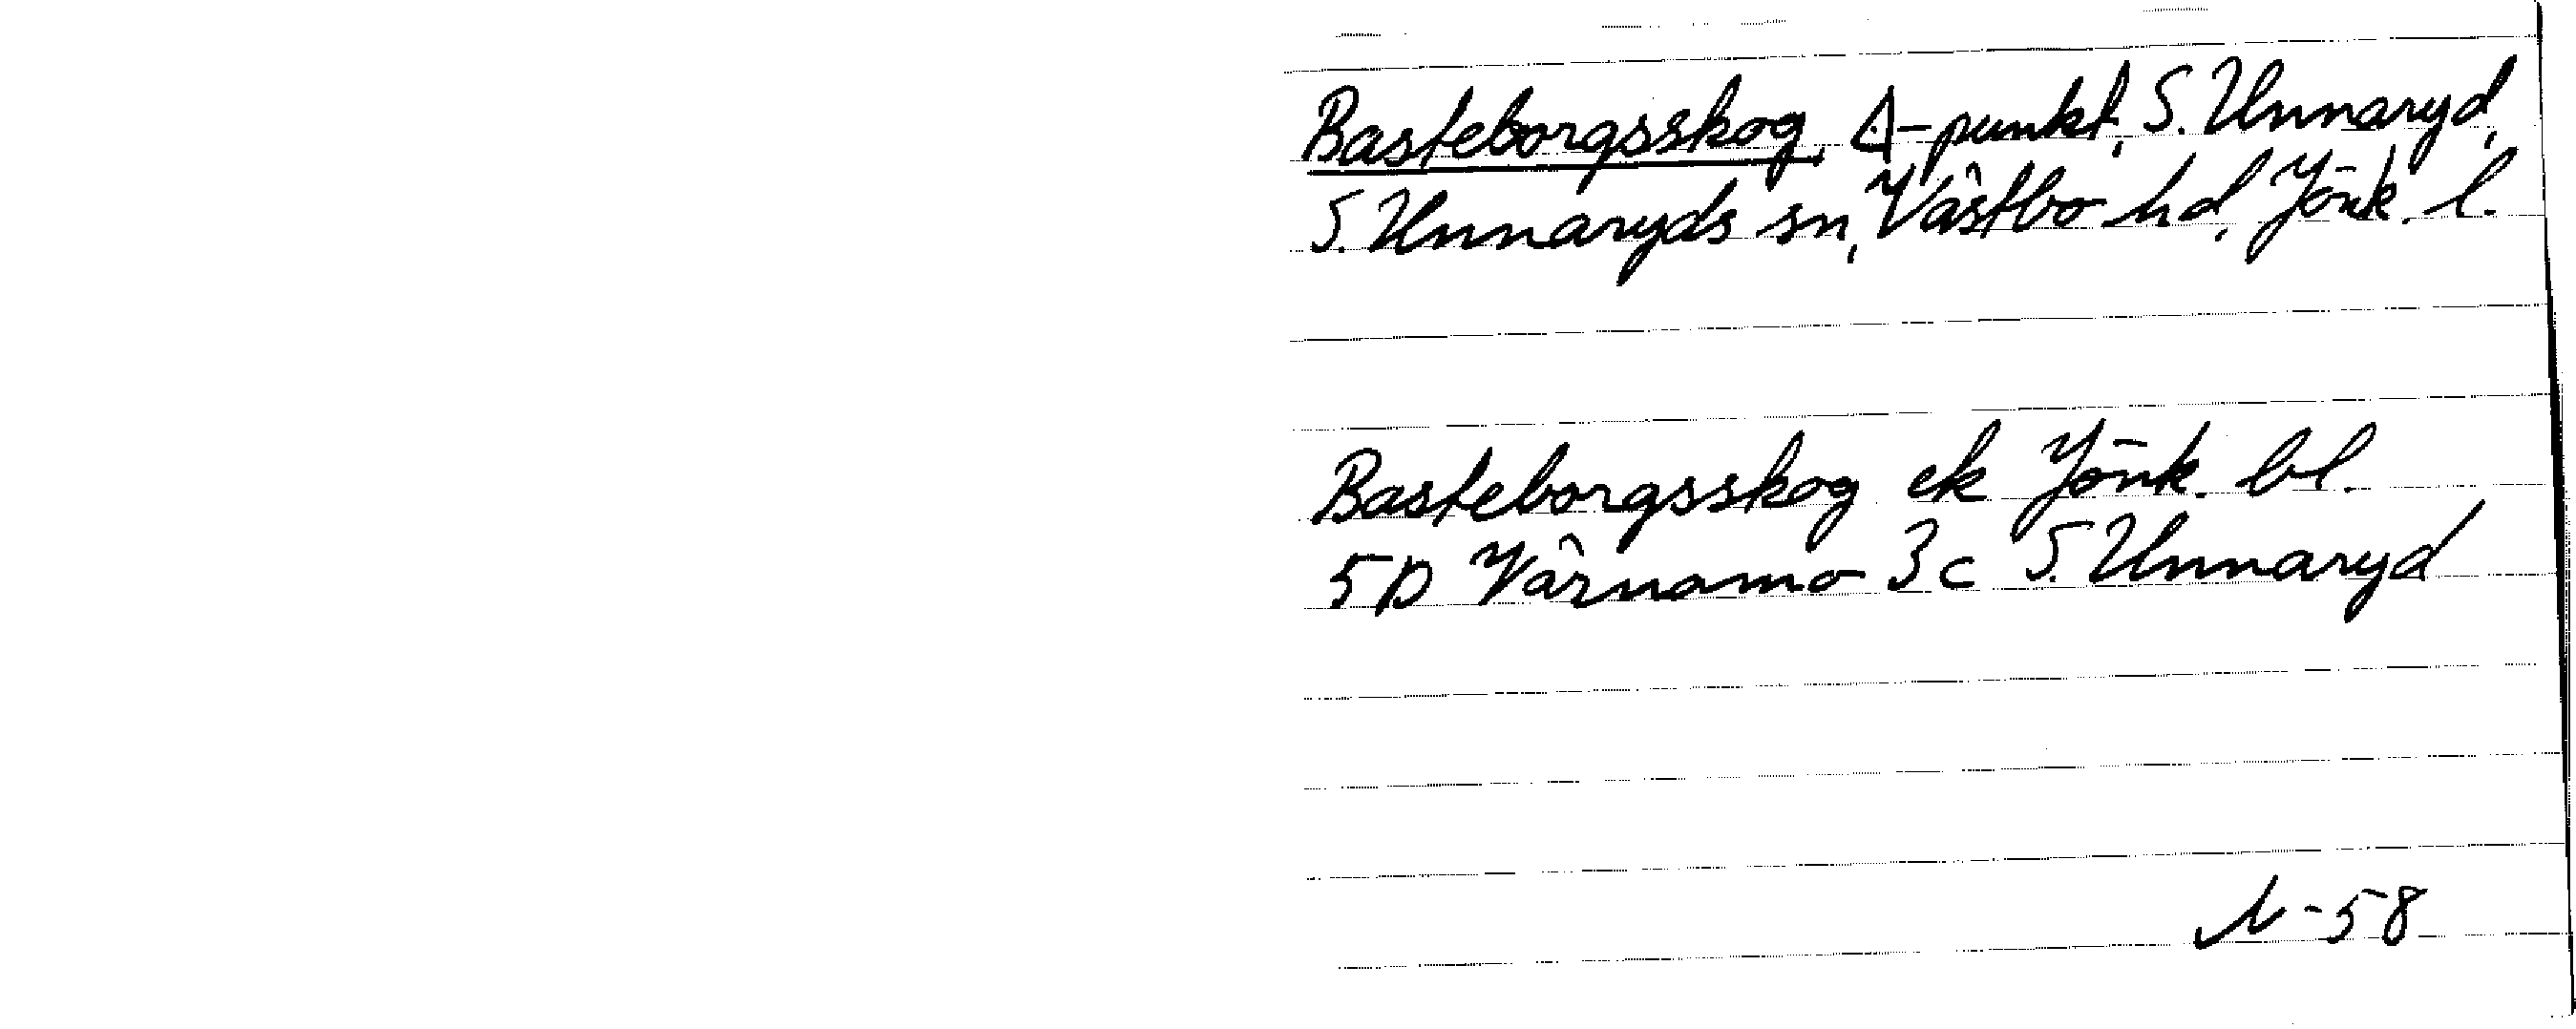 Basteborgsskog, Δ-punkt, S. Unnaryd,
S. Unnaryds sn, Västbo hd, Jönk. l.
Basteborgsskog ek Jönk. bl.
5D Värnamo 3c S. Unnaryd
N-58